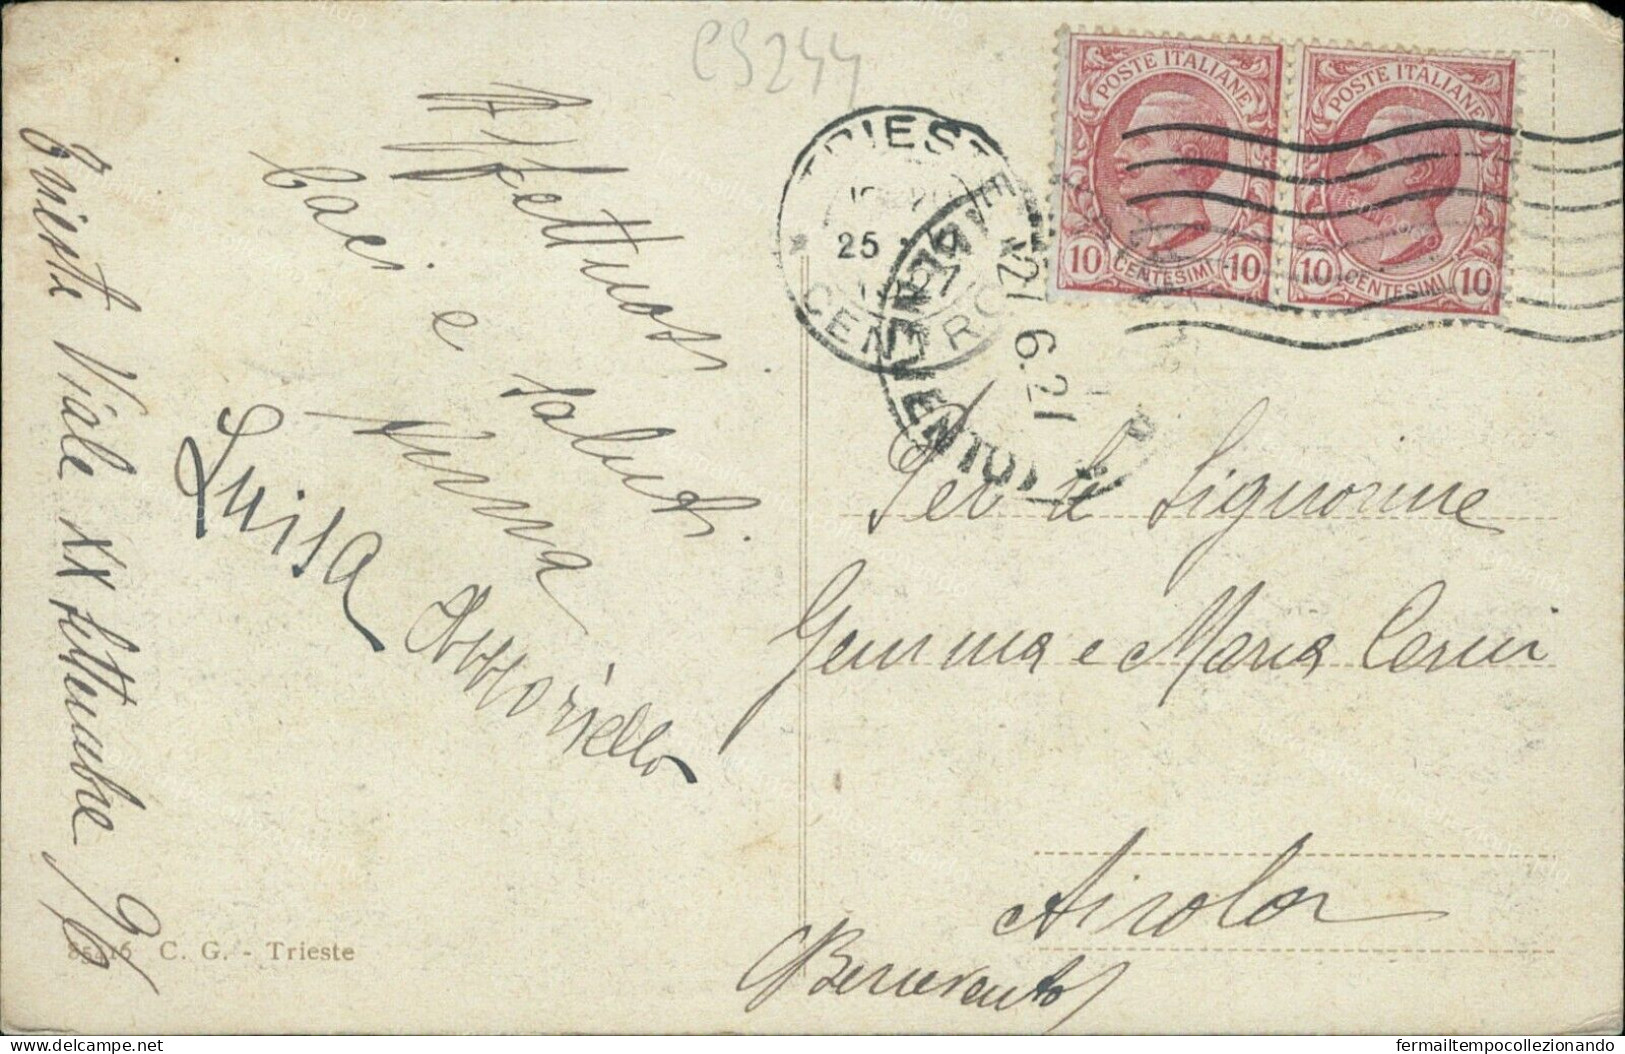 CS244
Affettuosi
baci e saluti
Anna
Luisa
Trieste Viale XX settembre 96
85216 C. G. - Trieste
TRIESTE
25
CENTRO
27 6.21
POSTE ITALIANE
10 CENTESIMI 10
POSTE ITALIANE
10 CENTESIMI 10
Per le Signorine
Gemma e Maria Cerni
Airola
(Benevento)
fermailtempocollezionando